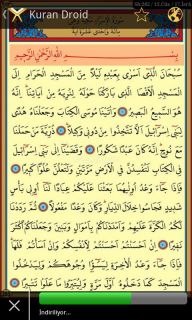 Sh:282 / 15.Cüz / 17.İsrâ
Kuran Droid
مِائَةٌ وَاِحْدٰى عَشْرَةَ اٰيَةً
بِسْمِ اللّٰهِ الرَّحْمٰنِ الرَّحِيمِ
سُبْحَانَ الَّذٖى اَسْرٰى بِعَبْدِهٖ لَيْلًا مِنَ الْمَسْجِدِ الْحَرَامِ اِلَى
الْمَسْجِدِ الْاَقْصَا الَّذٖى بَارَكْنَا حَوْلَهُ لِنُرِيَهُ مِنْ اٰيَاتِنَا اِنَّهُ
هُوَ السَّمٖيعُ الْبَصٖيرُ وَاٰتَيْنَا مُوسَى الْكِتَابَ وَجَعَلْنَاهُ هُدًى
لِبَنٖى اِسْرَائٖلَ اَلَّا تَتَّخِذُوا مِنْ دُونٖى وَكٖيلًا ذُرِّيَّةَ مَنْ حَمَلْنَا
مَعَ نُوحٍ اِنَّهُ كَانَ عَبْدًا شَكُورًا وَقَضَيْنَا اِلٰى بَنٖى
اِسْرَائٖلَ فِى الْكِتَابِ لَتُفْسِدُنَّ فِى الْاَرْضِ مَرَّتَيْنِ وَلَتَعْلُنَّ عُلُوًّا كَبٖيرًا
فَاِذَا جَاءَ وَعْدُ اُولٰيهُمَا بَعَثْنَا عَلَيْكُمْ عِبَادًا لَنَا اُولٖى بَاْسٍ
شَدٖيدٍ فَجَاسُوا خِلَالَ الدِّيَارِ وَكَانَ وَعْدًا مَفْعُولًا ثُمَّ رَدَدْنَا
لَكُمُ الْكَرَّةَ عَلَيْهِمْ وَاَمْدَدْنَاكُمْ بِاَمْوَالٍ وَبَنٖينَ وَجَعَلْنَاكُمْ اَكْثَرَ
نَفٖيرًا اِنْ اَحْسَنْتُمْ اَحْسَنْتُمْ لِاَنْفُسِكُمْ وَاِنْ اَسَاْتُمْ فَلَهَا
فَاِذَا جَاءَ وَعْدُ الْاٰخِرَةِ لِيَسُؤُا وُجُوهَكُمْ وَلِيَدْخُلُوا
الْمَسْجِدَ كَمَا دَخَلُوهُ اَوَّلَ مَرَّةٍ وَلِيُتَبِّرُوا مَا عَلَوْا تَتْبٖيرًا
İndiriliyor...